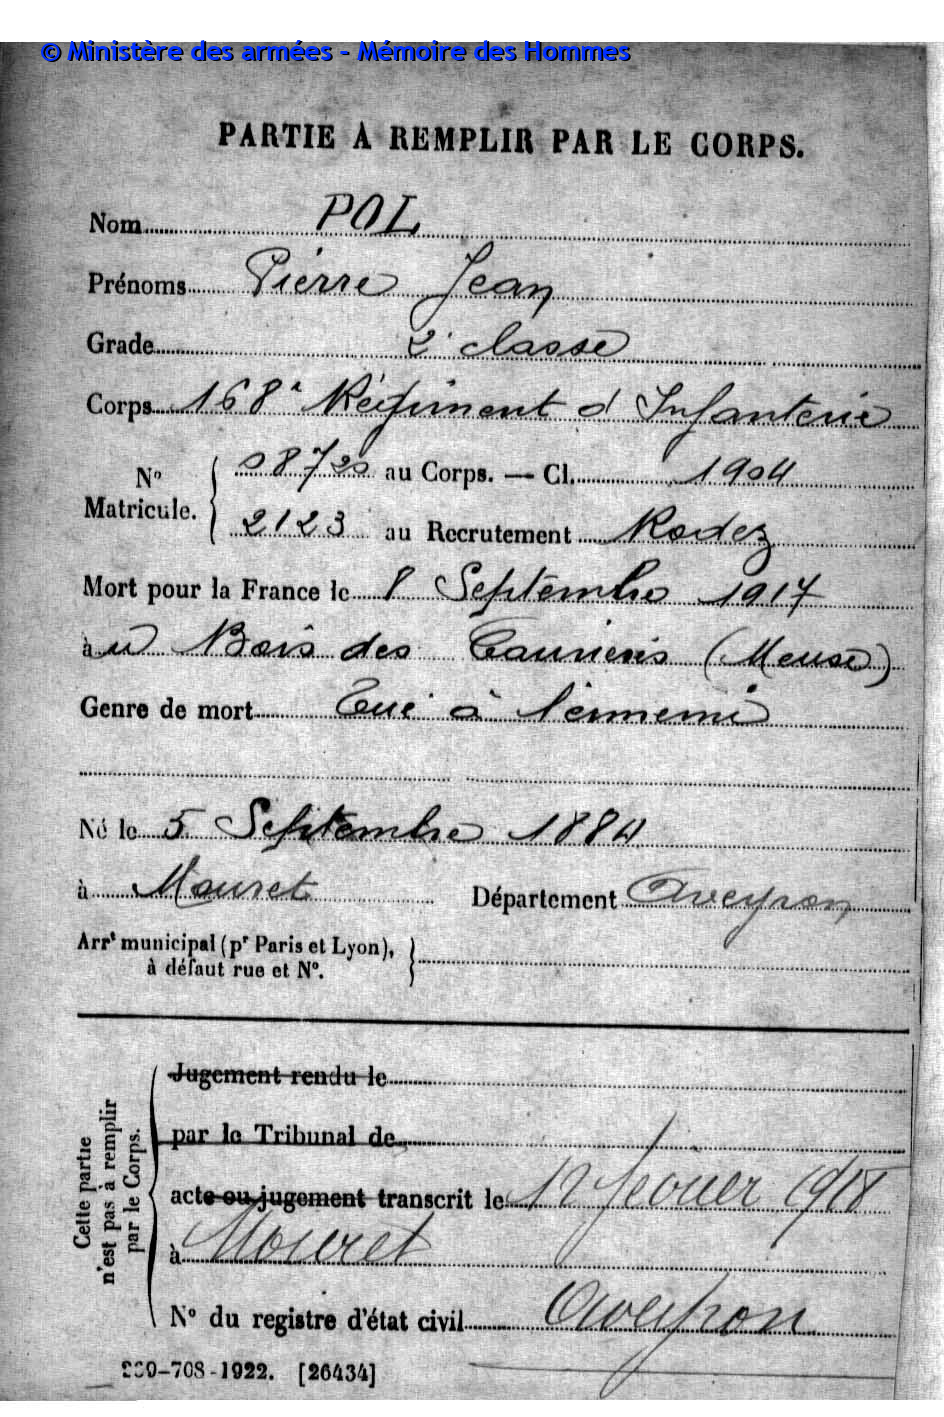 © Ministère des armées - Mémoire des Hommes
PARTIE A REMPLIR PAR LE CORPS.
Nom POL
Prénoms Pierre Jean
Grade 2e classe
Corps 168e Régiment d'Infanterie
No Matricule. { 08720 au Corps. — Cl. 1904
2123 au Recrutement Rodez
Mort pour la France le 8 Septembre 1917
à u Bois des Caurières (Meuse)
Genre de mort Tué à l'ennemi
Né le 5 Septembre 1884
à Mouret Département Aveyron
Arrt municipal (pr Paris et Lyon),
à défaut rue et No.
Cette partie
n'est pas à remplir
par le Corps.
Jugement rendu le
par le Tribunal de
acte ou jugement transcrit le 12 février 1918
à Mouret
No du registre d'état civil Aveyron
-708-1922. [26434]